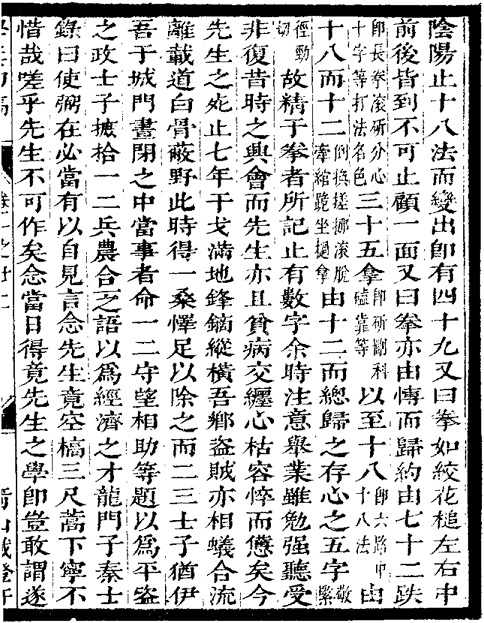 陰陽止十八法而變出卽有四十九又曰拳如絞花槌左右中
前後皆到不可止顧一面又曰拳亦由慱而歸約由七十二跌
卽長拳滾斫分心十字等打法名色三十五拿卽斫刪科磕靠等以至十八卽六路中十八法由
十八而十二倒換搓挪滾脫牽綰跪坐撾拿由十二而總歸之存心之五字敬緊
徑勁切故精于拳者所記止有數字余時注意舉業雖勉强聽受
非復昔時之興會而先生亦且貧病交纒心枯容悴而憊矣今
先生之死止七年干戈滿地鋒鏑縱橫吾鄉盜賊亦相蟻合流
離載道白骨蔽野此時得一桑懌足以除之而二三士子猶伊
吾于城門晝閉之中當事者命一二守望相助等題以爲平盜
之政士子摭拾一二兵農合之語以爲經濟之才龍門子秦士
錄曰使弼在必當有以自見言念先生竟空槁三尺蒿下寧不
惜哉嗟乎先生不可作矣念當日得竟先生之學卽豈敢謂遂